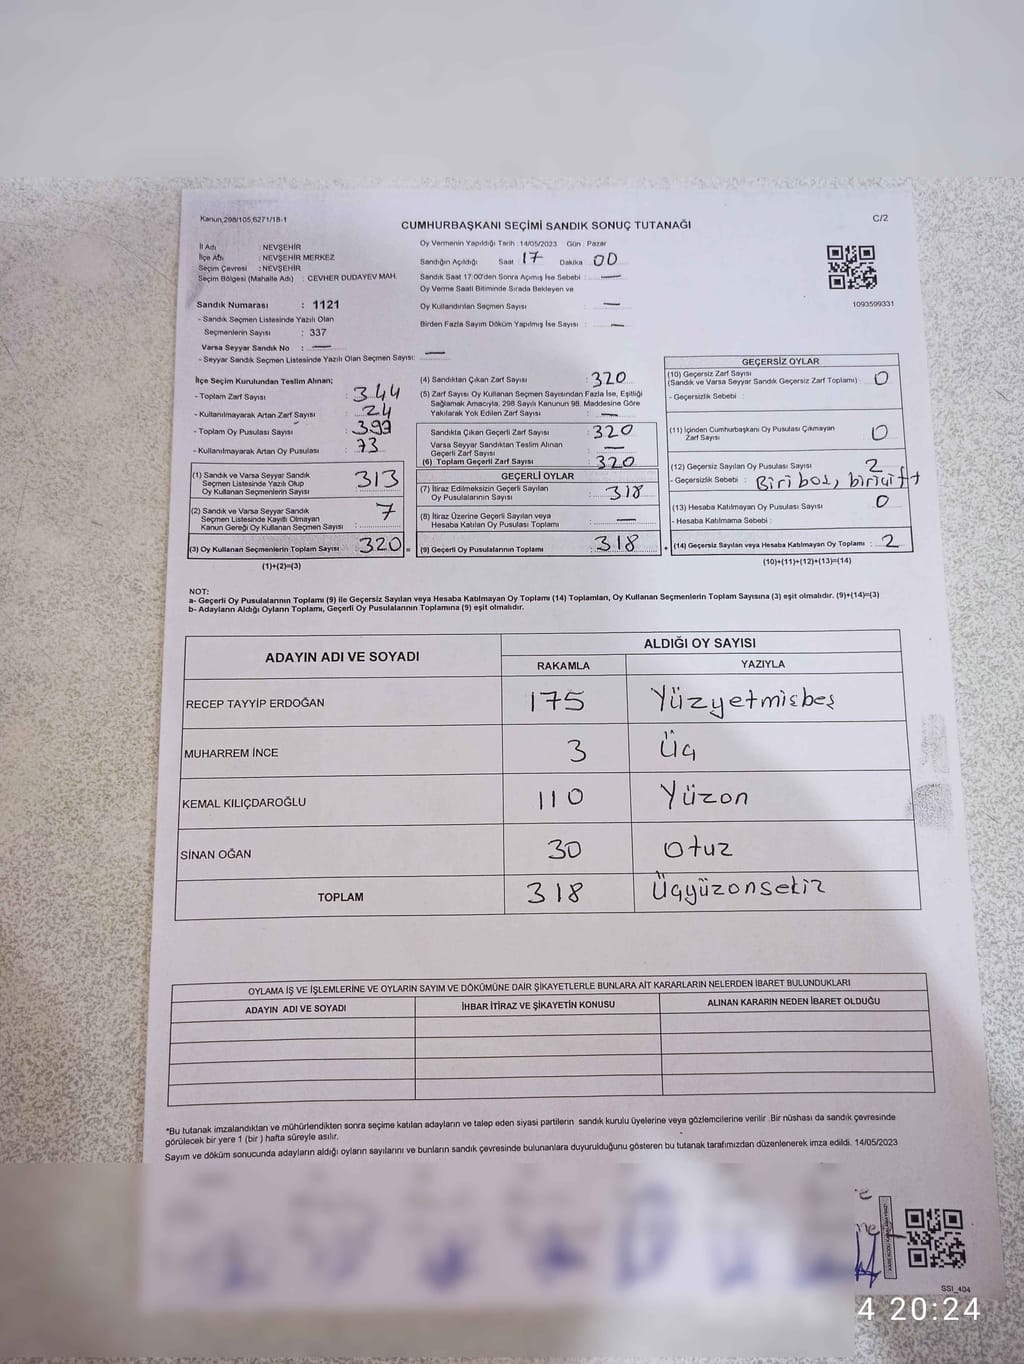 Kanun,298/105,6271/18-1
C/2
CUMHURBAŞKANI SEÇİMİ SANDIK SONUÇ TUTANAĞI
İl Adı : NEVŞEHİR
İlçe Adı : NEVŞEHİR MERKEZ
Seçim Çevresi : NEVŞEHİR
Seçim Bölgesi (Mahalle Adı) : CEVHER DUDAYEV MAH.
Sandık Numarası : 1121
- Sandık Seçmen Listesinde Yazılı Olan
Seçmenlerin Sayısı : 337
Varsa Seyyar Sandık No : —
- Seyyar Sandık Seçmen Listesinde Yazılı Olan Seçmen Sayısı: —
Oy Vermenin Yapıldığı Tarih : 14/05/2023 Gün : Pazar
Sandığın Açıldığı Saat 17 Dakika 00
Sandık Saat 17:00'den Sonra Açımış İse Sebebi : —
Oy Verme Saati Bitiminde Sırada Bekleyen ve
Oy Kullandırılan Seçmen Sayısı : —
Birden Fazla Sayım Döküm Yapılmış İse Sayısı : —
1093599331
İlçe Seçim Kurulundan Teslim Alınan;
- Toplam Zarf Sayısı : 344
- Kullanılmayarak Artan Zarf Sayısı : 24
- Toplam Oy Pusulası Sayısı : 393
- Kullanılmayarak Artan Oy Pusulası : 73
(1) Sandık ve Varsa Seyyar Sandık
Seçmen Listesinde Yazılı Olup
Oy Kullanan Seçmenlerin Sayısı : 313
(2) Sandık ve Varsa Seyyar Sandık
Seçmen Listesinde Kayıtlı Olmayan
Kanun Gereği Oy Kullanan Seçmen Sayısı : 7
(3) Oy Kullanan Seçmenlerin Toplam Sayısı : 320 =
(1)+(2)=(3)
(4) Sandıktan Çıkan Zarf Sayısı : 320
(5) Zarf Sayısı Oy Kullanan Seçmen Sayısından Fazla İse, Eşitliği
Sağlamak Amacıyla, 298 Sayılı Kanunun 98. Maddesine Göre
Yakılarak Yok Edilen Zarf Sayısı : —
Sandıkta Çıkan Geçerli Zarf Sayısı : 320
Varsa Seyyar Sandıktan Teslim Alınan
Geçerli Zarf Sayısı : —
(6) Toplam Geçerli Zarf Sayısı : 320
GEÇERLİ OYLAR
(7) İtiraz Edilmeksizin Geçerli Sayılan
Oy Pusulalarının Sayısı : 318
(8) İtiraz Üzerine Geçerli Sayılan veya
Hesaba Katılan Oy Pusulası Toplamı : —
(9) Geçerli Oy Pusulalarının Toplamı : 318 +
GEÇERSİZ OYLAR
(10) Geçersiz Zarf Sayısı
(Sandık ve Varsa Seyyar Sandık Geçersiz Zarf Toplamı) : 0
- Geçersizlik Sebebi :
(11) İçinden Cumhurbaşkanı Oy Pusulası Çıkmayan
Zarf Sayısı : 0
(12) Geçersiz Sayılan Oy Pusulası Sayısı : 2
- Geçersizlik Sebebi : Biri boş, biri çift
(13) Hesaba Katılmayan Oy Pusulası Sayısı : 0
- Hesaba Katılmama Sebebi :
(14) Geçersiz Sayılan veya Hesaba Katılmayan Oy Toplamı : 2
(10)+(11)+(12)+(13)=(14)
NOT:
a- Geçerli Oy Pusulalarının Toplamı (9) ile Geçersiz Sayılan veya Hesaba Katılmayan Oy Toplamı (14) Toplamları, Oy Kullanan Seçmenlerin Toplam Sayısına (3) eşit olmalıdır. (9)+(14)=(3)
b- Adayların Aldığı Oyların Toplamı, Geçerli Oy Pusulalarının Toplamına (9) eşit olmalıdır.
ADAYIN ADI VE SOYADI
ALDIĞI OY SAYISI
RAKAMLA YAZIYLA
RECEP TAYYİP ERDOĞAN 175 Yüzyetmişbeş
MUHARREM İNCE 3 Üç
KEMAL KILIÇDAROĞLU 110 Yüzon
SİNAN OĞAN 30 Otuz
TOPLAM 318 Üçyüzonsekiz
OYLAMA İŞ VE İŞLEMLERİNE VE OYLARIN SAYIM VE DÖKÜMÜNE DAİR ŞİKAYETLERLE BUNLARA AİT KARARLARIN NELERDEN İBARET BULUNDUKLARI
ADAYIN ADI VE SOYADI İHBAR İTİRAZ VE ŞİKAYETİN KONUSU ALINAN KARARIN NEDEN İBARET OLDUĞU
*Bu tutanak imzalandıktan ve mühürlendikten sonra seçime katılan adayların ve talep eden siyasi partilerin sandık kurulu üyelerine veya gözlemcilerine verilir .Bir nüshası da sandık çevresinde
görülecek bir yere 1 (bir ) hafta süreyle asılır.
Sayım ve döküm sonucunda adayların aldığı oyların sayılarını ve bunların sandık çevresinde bulunanlara duyurulduğunu gösteren bu tutanak tarafımızdan düzenlenerek imza edildi. 14/05/2023
SSI_404
4 20:24